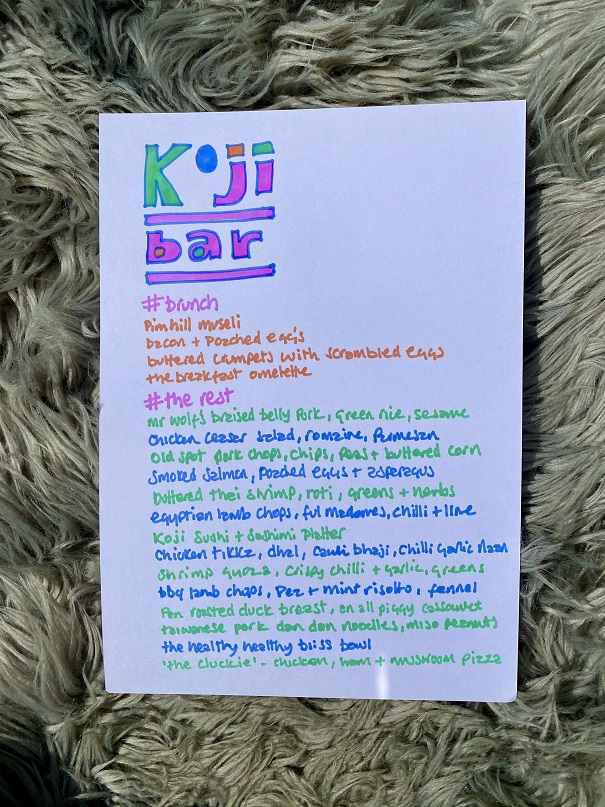 Koji
bar
#brunch
Pimhill museli
bacon + Poached egg's
buttered crumpets with scrambled eggs
the breakfast omelette
#the rest
Mr wolfs braised belly Pork, green rice, sesame
Chicken ceaser salad, romaine, Parmesan
Old spot pork chops, chips, Peas + buttered corn
Smoked salmon, poached eggs + asparagus
buttered thai shrimp, roti, greens + herbs
egyptian lamb chops, ful madames, chilli + lime
Koji Sushi + Sashimi Platter
Chicken tikka, dhal, cauli bhaji, Chilli garlic naan
Shrimp gyoza, crispy chilli + garlic, greens
bbq lamb chops, Pea + mint risotto, fennel
Pan roasted duck breast, an all piggy cassoulet
taiwanese pork dan dan noodles, miso peanuts
the healthy healthy bliss bowl
'the cluckie' - chicken, ham + mushroom pizza